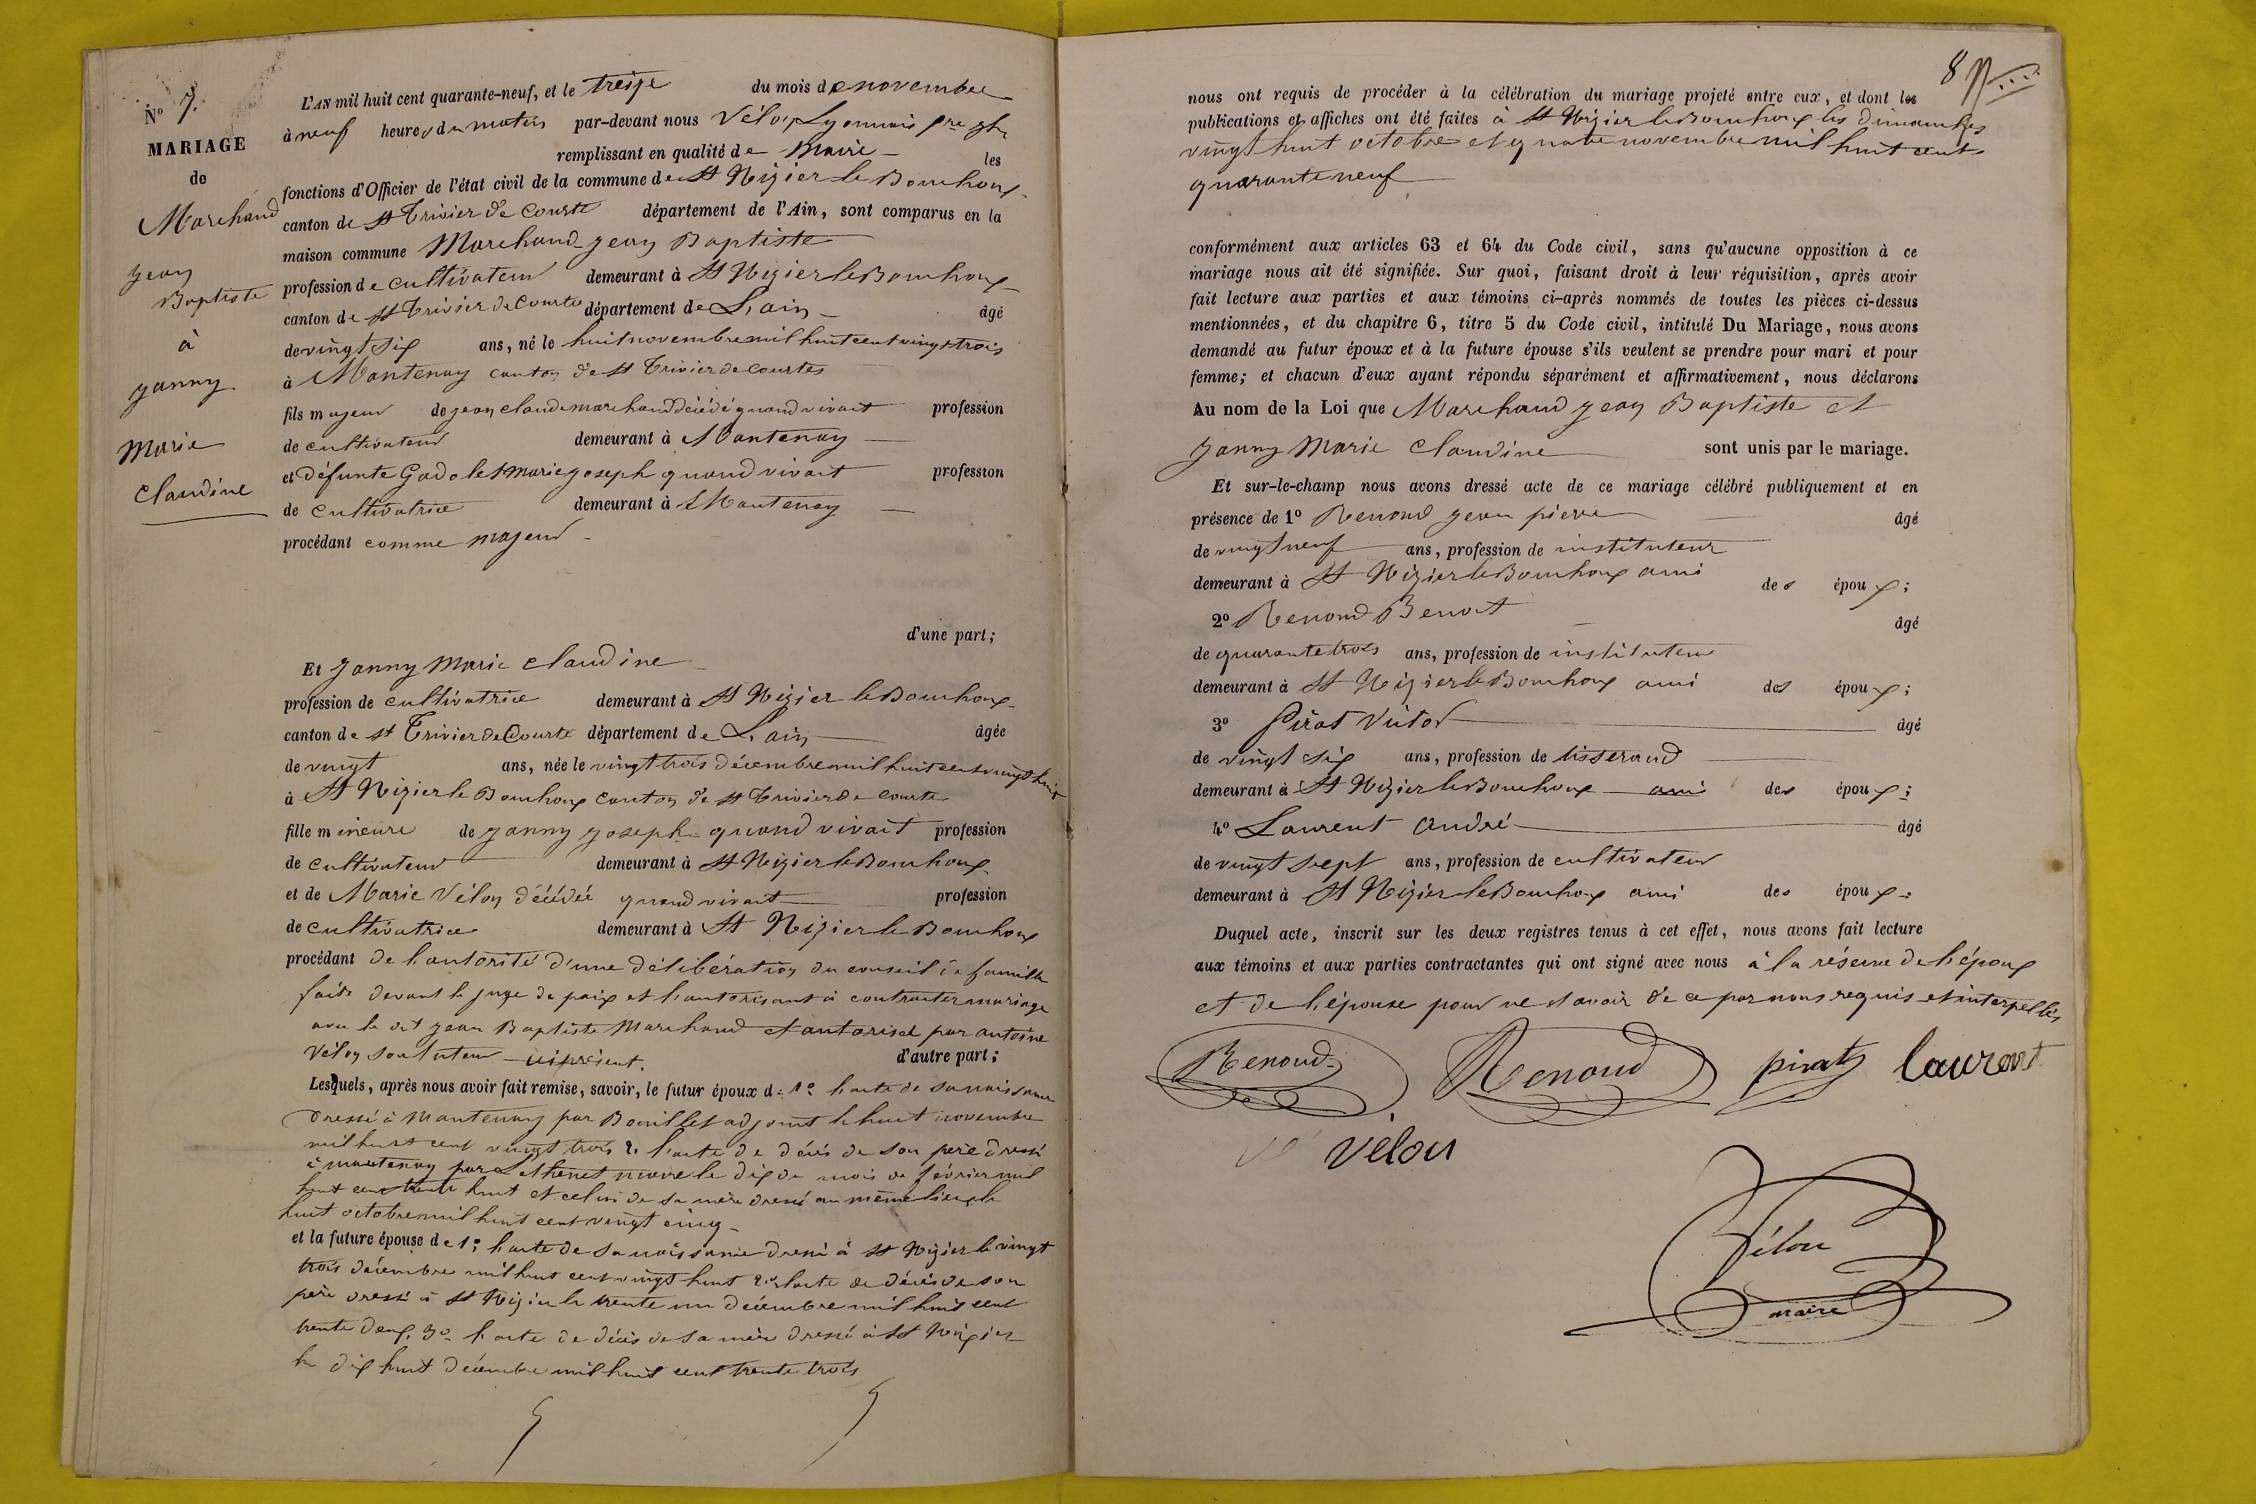 N° 7.
MARIAGE
de
Marchand
jean
Baptiste
à
janny
marie
claudine
L'AN mil huit cent quarante-neuf, et le treize du mois de novembre
à neuf heures du matin par-devant nous Vélon Lyonnais
remplissant en qualité de maire les
fonctions d'Officier de l'état civil de la commune de St Nizier le Bouchoux
canton de St Trivier de Courte département de l'Ain, sont comparus en la
maison commune Marchand jean Baptiste
profession de cultivateur demeurant à St Nizier le Bouchoux
canton de St Trivier de Courte département de L'ain âgé
de vingt six ans, né le huit novembre mil huit cent vingt trois
à Mantenay canton de St Trivier de courtes
fils majeur de jean claude marchand décédé quand vivait profession
de cultivateur demeurant à Mantenay
et défunte Gadolet marie joseph quand vivait profession
de cultivatrice demeurant à Mantenay
procédant comme majeur
d'une part;
Et janny marie claudine
profession de cultivatrice demeurant à St Nizier le Bouchoux
canton de St Trivier de Courte département de L'ain âgée
de vingt ans, née le vingt trois décembre mil huit cent vingt huit
à St Nizier le Bouchoux canton de St Trivier de courte
fille mineure de janny joseph quand vivait profession
de cultivateur demeurant à St Nizier le Bouchoux
et de Marie Vélon décédée quand vivait profession
de cultivatrice demeurant à St Nizier le Bouchoux
procédant de l'autorité d'une délibération du conseil de famille
faite devant le juge de paix et l'autorisant à contracter mariage
avec le dit jean Baptiste Marchand et autorisée par antoine
Vélon son tuteur ici présent. d'autre part;
Lesquels, après nous avoir fait remise, savoir, le futur époux de 1° l'acte de sa naissance
dressé à Mantenay par Bouillet adjoint le huit novembre
mil huit cent vingt trois 2° l'acte de décès de son père dressé
à mantenay par Lethenet maire le dix du mois de février mil
huit cent trente huit et celui de sa mère dressé au même lieu le
huit octobre mil huit cent vingt cinq
et la future épouse de 1° l'acte de sa naissance dressé à St Nizier le vingt
trois décembre mil huit cent vingt huit 2° l'acte de décès de son
père dressé à St Nizier le trente un décembre mil huit cent
trente deux, 3° l'acte de décès de sa mère dressé à St Nizier
le dix huit décembre mil huit cent trente trois
8
nous ont requis de procéder à la célébration du mariage projeté entre eux, et dont les
publications et affiches ont été faites à St Nizier le Bouchoux les dimanches
vingt huit octobre et quatre novembre mil huit cent
quarante neuf
conformément aux articles 63 et 64 du Code civil, sans qu'aucune opposition à ce
mariage nous ait été signifiée. Sur quoi, faisant droit à leur réquisition, après avoir
fait lecture aux parties et aux témoins ci-après nommés de toutes les pièces ci-dessus
mentionnées, et du chapitre 6, titre 5 du Code civil, intitulé Du Mariage, nous avons
demandé au futur époux et à la future épouse s'ils veulent se prendre pour mari et pour
femme; et chacun d'eux ayant répondu séparément et affirmativement, nous déclarons
Au nom de la Loi que Marchand jean Baptiste et
janny Marie Claudine sont unis par le mariage.
Et sur-le-champ nous avons dressé acte de ce mariage célébré publiquement et en
présence de 1° Renoud jean pierre âgé
de vingt neuf ans, profession de instituteur
demeurant à St Nizier le Bouchoux ami des époux;
2° Renoud Benoit âgé
de quarante trois ans, profession de instituteur
demeurant à St Nizier le Bouchoux ami des époux;
3° Pirat Victor âgé
de vingt six ans, profession de tisserand
demeurant à St Nizier le Bouchoux ami des époux;
4° Laurent André âgé
de vingt sept ans, profession de cultivateur
demeurant à St Nizier le Bouchoux ami des époux;
Duquel acte, inscrit sur les deux registres tenus à cet effet, nous avons fait lecture
aux témoins et aux parties contractantes qui ont signé avec nous à la réserve de l'époux
et de l'épouse pour ne savoir de ce par nous requis et interpellés
Renoud Renoud pirat laurent
Vélon
Vélon
maire